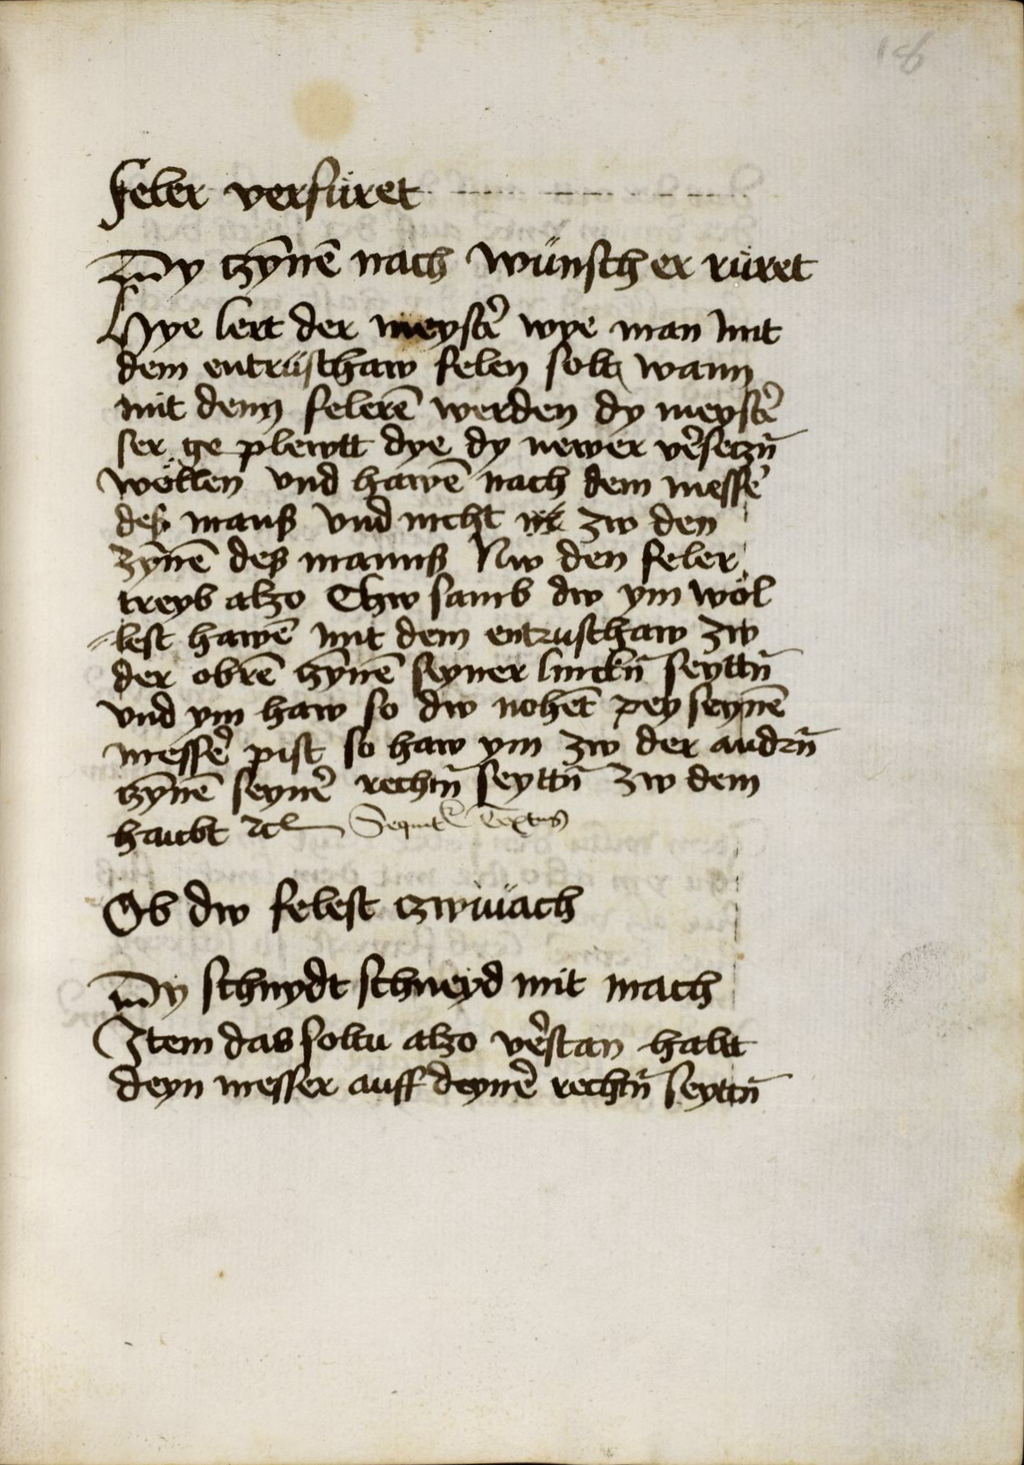 18
Feler verfüret
Dy zÿnē nach wünsch er rüret
Hye lert der meystẽ wye man mit
dem entrüsthaw felen solt wann
mit denn felerē werden dy meystẽ
ser ge plewtt dye dy newer vẽseczñ
wöllen vnd hawē nach dem messẽ
des manß vnd nicht zw den
zÿnē des mannß Nw den feler
treyb alzo Thw samb dw ym wöl
lest hawē mit dem entrusthaw zw
der obrē zÿnē seyner linckñ seyttñ
vnd ym haw so dw nohēt pey seynē
messẽ pist so haw ym zw der andrñ
zÿnē seynẽ rechtñ seyttñ zw dem
haubt ꝛcͭ Sequitᷣ Textus
Ob dw felest zwifach
Dy schnydt schneyd mit mach
Item das soltu alzo vẽstan haltt
deyn messer auff deynẽ rechtñ seyttñ